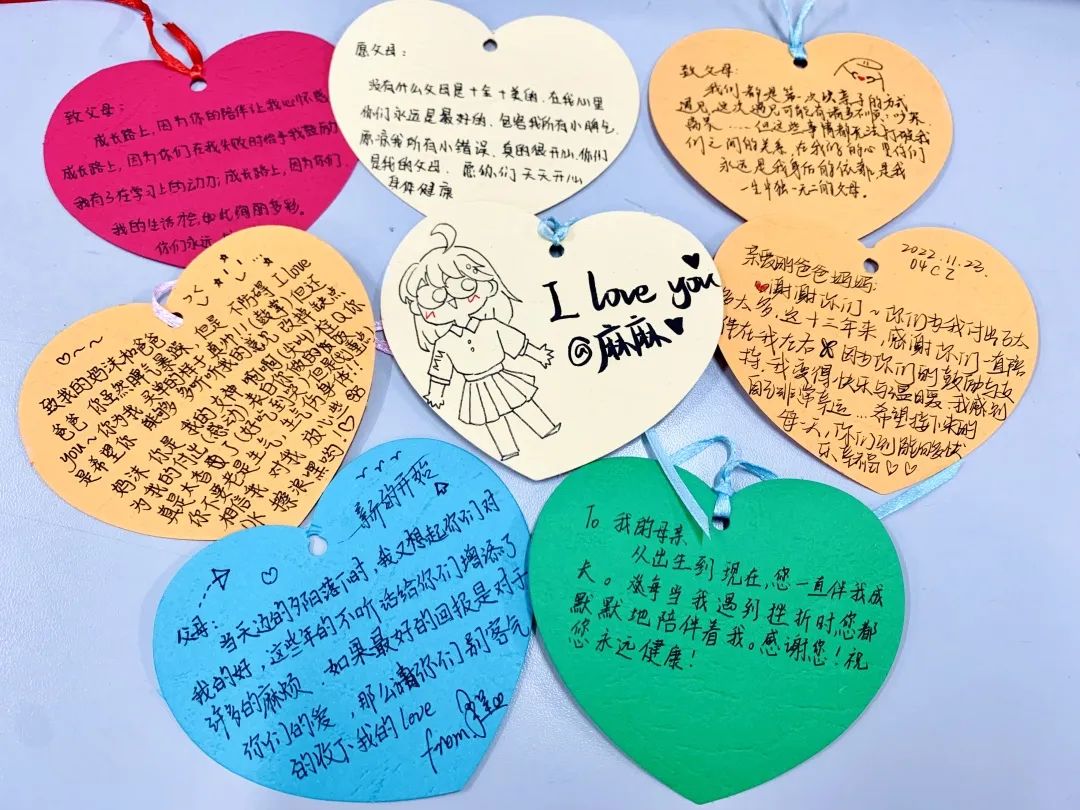 致父母：
成长路上,因为你的陪伴让我心怀感
成长路上,因为你们在我失败时给予我鼓励
我有了在学习上的动力;成长路上,因为你们.
我的生活才会由此绚丽多彩.
你们永远
愿父母：
没有什么父母是十全十美的.在我心里
你们永远是最好的.包容我所有小脾气.
原谅我所有小错误.真的很开心.你们
是我的父母.愿你们天天开心
身体健康
致父母:
我们都是第一次以亲子的方式
遇见,这次遇见可能有诸多不顺:吵架、
但这些事情都无法打破我
们之间的关系,在我的心里你们
永远是我身后的依靠,是我
一生中独一无二的父母.
致我的妈沫和爸爸
爸爸 你虽然脾气暴躁,但是 不妨碍 I Love
you~ 你为我买单的样子真帅!!!(鼓掌)但还
是希望你 能够多听听我的意见,改掉缺点
妈沫 你是 我的女神 啊啊(尖叫)
为我的付出(感动)
真是太香了
你不要老是生气,生气伤身体!
相信我 对我 放心些
OK
I love you
@麻麻
2022.11.23.
04CZ
亲爱的爸爸妈妈:
谢谢你们~你们为我付出了太
多太多,这十二年来,感谢你们一直陪
伴在我左右 因为你们的鼓励与支
持,我变得快乐与温暖.我感到
自己非常幸运...希望接下来的
每一天,你们都能够快
乐、幸福♡♡
新的开始
父母:
当天边的夕阳落下时,我又想起你们对
我的好,这些年的不听话给你们增添了
许多的麻烦 如果最好的回报是对于
你们的爱,那么请你们别客气
的收下我的love
from
To 我的母亲
从出生到现在,您一直伴我成
长。每当我遇到挫折时您都
默默地陪伴着我。感谢您!祝
您永远健康!